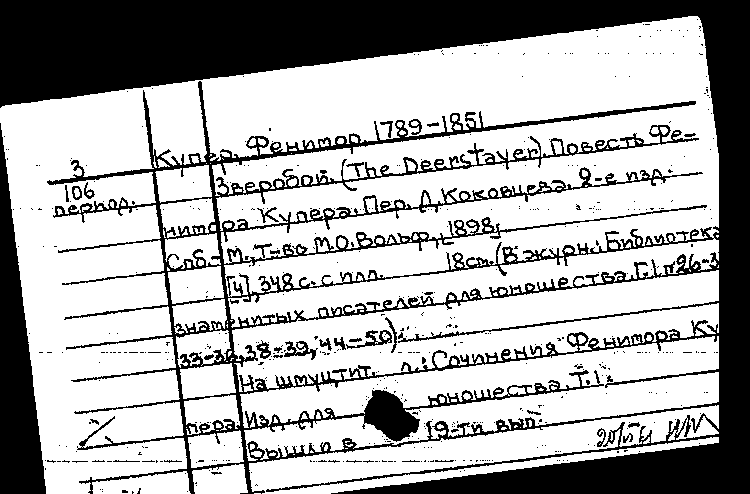 Купер, Фенимор. 1789-1851
3
106
период.
Зверобой. (The Deerstayer). Повесть Фе-
нимора Купера. Пер. Д. Коковцева. 2-е изд.
Спб.-М., Т-во М.О. Вольф, [1898]
[4], 348 с. с илл. 18 см. (В журн.: Библиотека
знаменитых писателей для юношества. Г.I №26-3
33-36, 38-39, 44-50).
На шмуцтит. л.: Сочинения Фенимора Ку
пера. Изд. для юношества. Т.I.
Вышло в 19-ти вып.